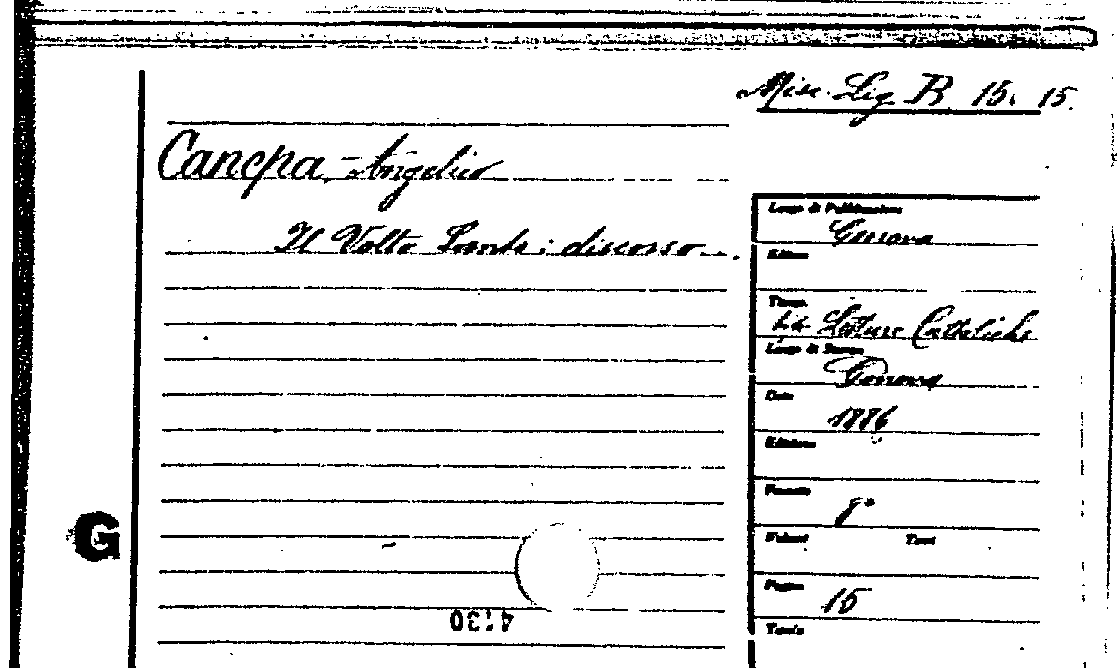 Misc. Lig. B. 15. 15.
Canepa, Angelico
Il Volto Santo: discorso
Luogo di Pubblicazione
Genova
Editore
Tipogr.
Lett. Letture Cattoliche
Luogo di Stampa
Genova
Data
1886
Edizione
Formato
8°
Volumi Tomi
Pagine
15
Tavole
G
4130